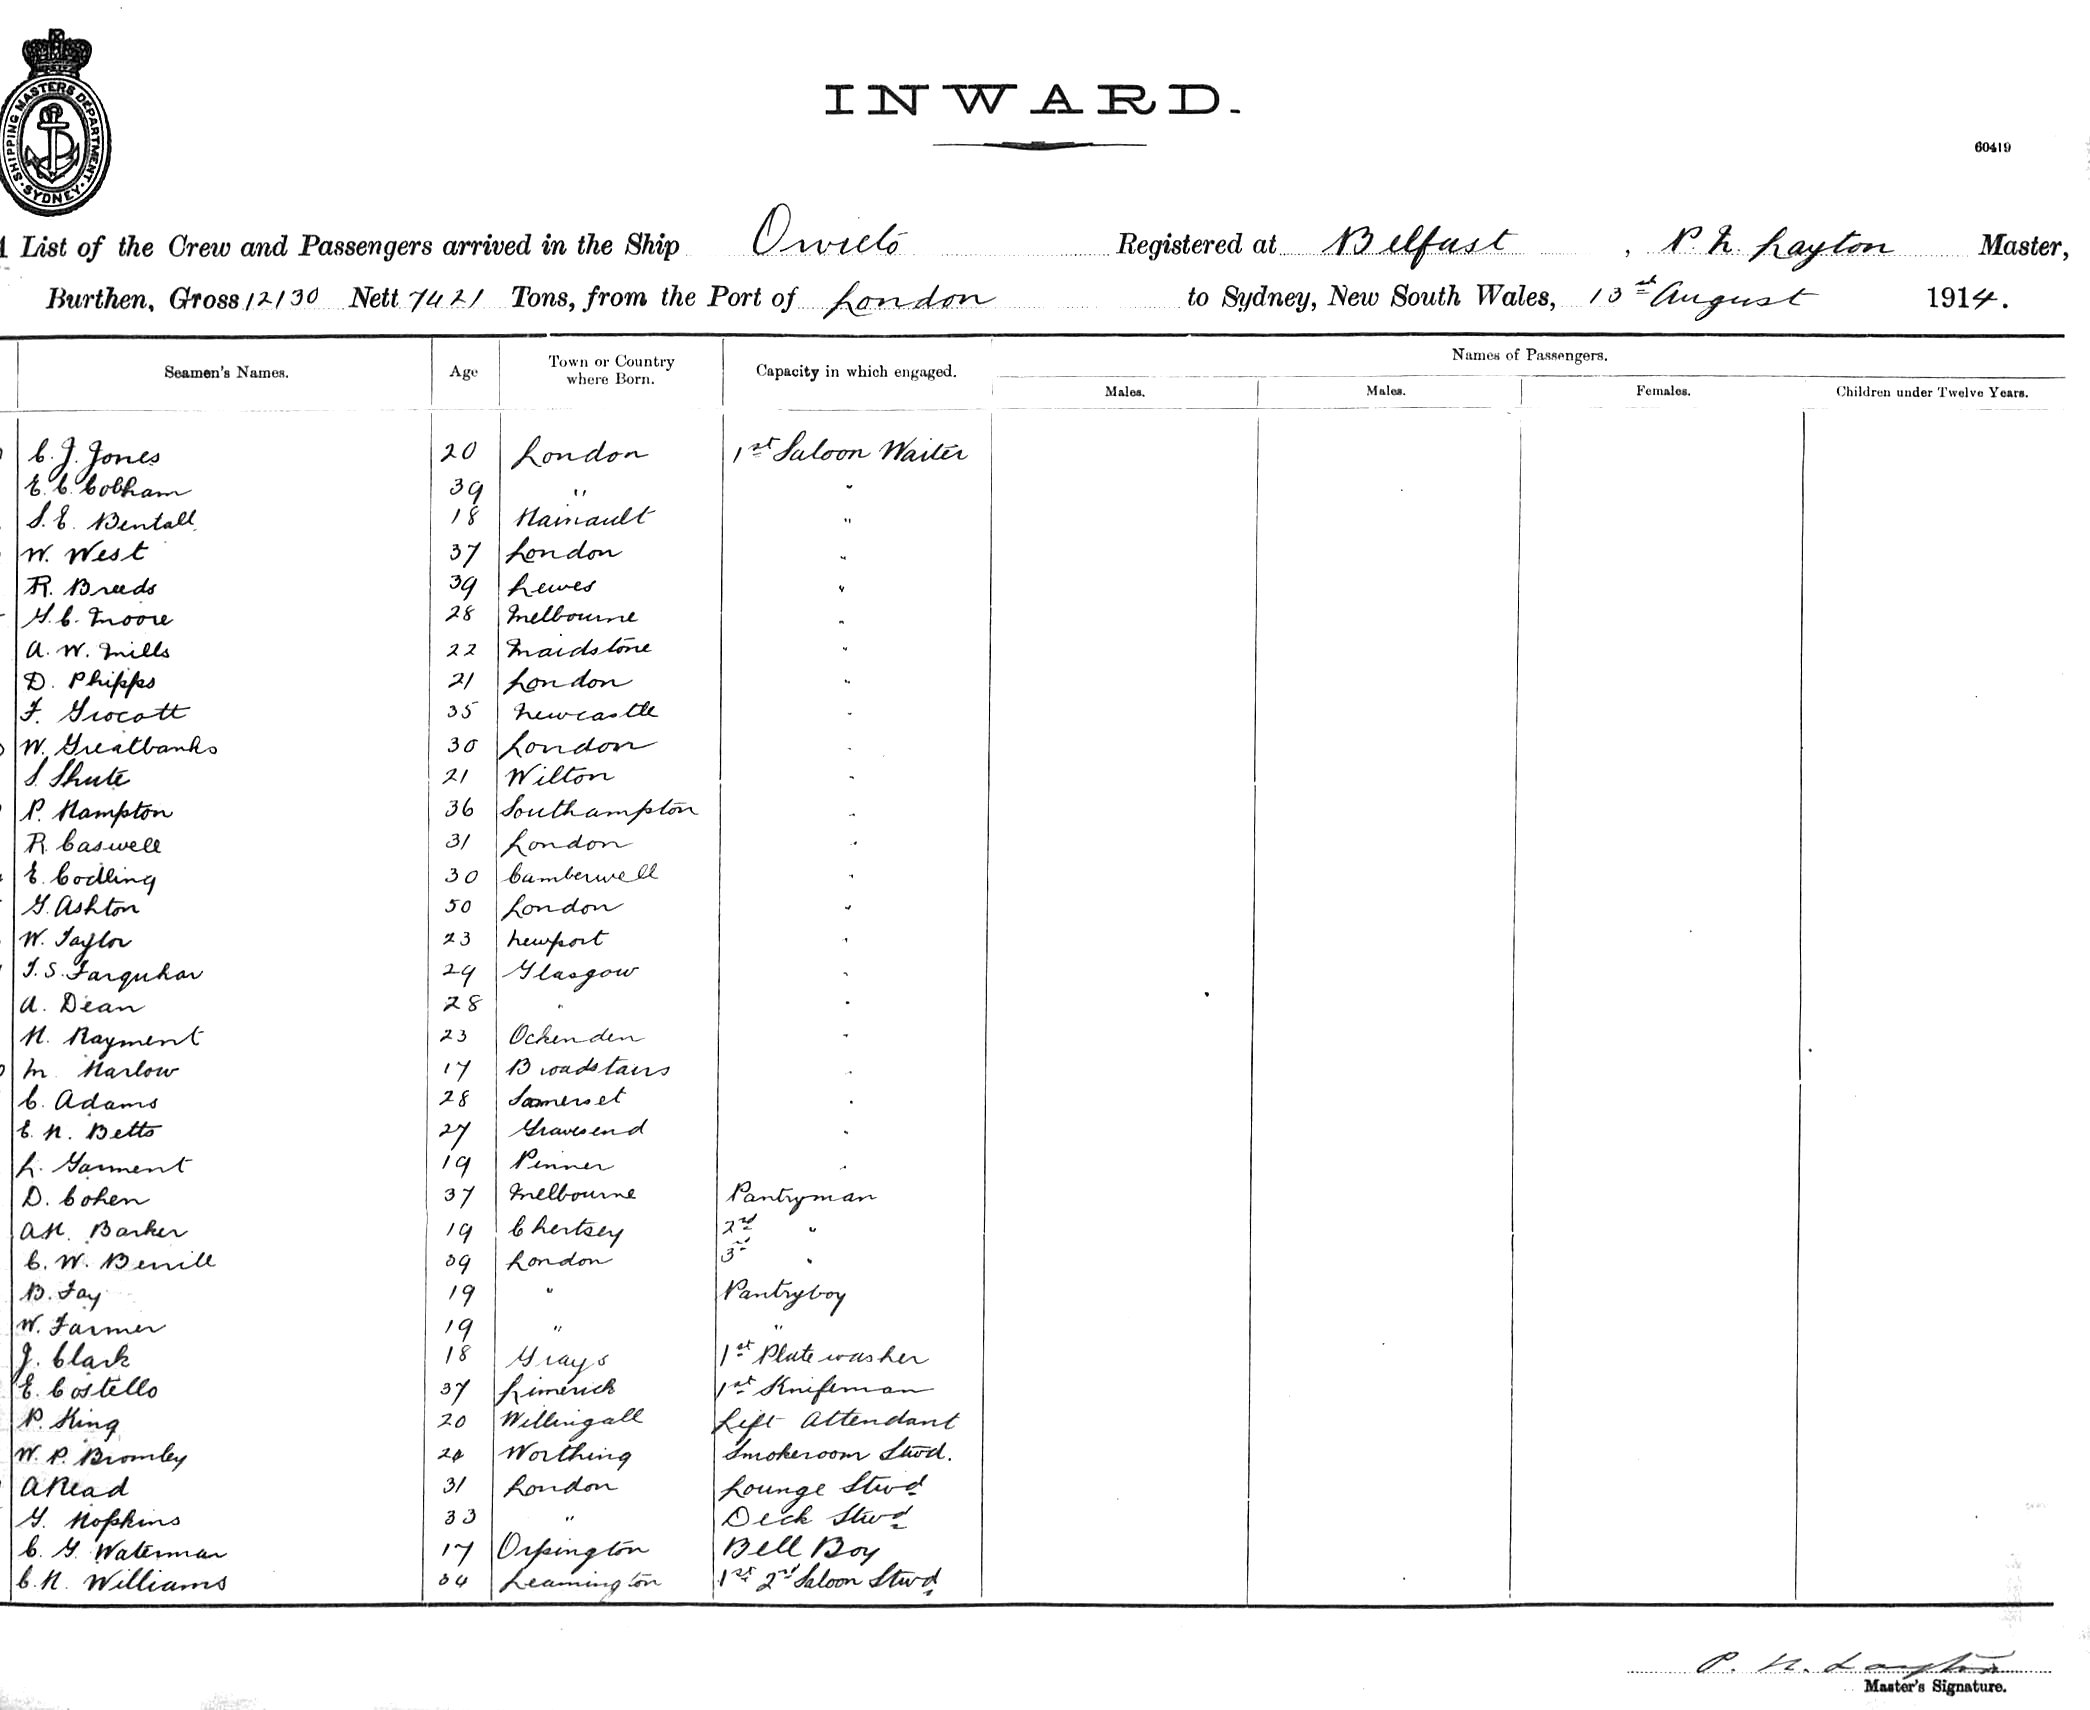 SHIPPING MASTERS DEPARTMENT
SYDNEY
INWARD.
60419
List of the Crew and Passengers arrived in the Ship Orvieto Registered at Belfast, P. N. Layton Master,
Burthen, Gross 12130 Nett 7421 Tons, from the Port of London to Sydney, New South Wales, 13th August 1914.
Seamen's Names. Age Town or Country where Born. Capacity in which engaged. Names of Passengers.
Males. Males. Females. Children under Twelve Years.
C. J. Jones 20 London 1st Saloon Waiter
E. C. Cobham 39 " "
S. E. Bentall 18 Hainault "
W. West 37 London "
R. Breeds 39 Lewes "
G. C. Moore 28 Melbourne "
A. W. Mills 22 Maidstone "
D. Phipps 21 London "
F. Grocott 35 Newcastle "
W. Greatbanks 30 London "
S. Shute 21 Wilton "
P. Hampton 36 Southampton "
R. Caswell 31 London "
E. Codling 30 Camberwell "
G. Ashton 50 London "
W. Taylor 23 Newport "
T. S. Farquhar 29 Glasgow "
A. Dean 28 " "
H. Rayment 23 Ockenden "
M. Harlow 17 Broadstairs "
C. Adams 28 Somerset "
E. H. Betts 27 Gravesend "
L. Garment 19 Pinner "
D. Cohen 37 Melbourne Pantryman
A H. Barker 19 Chertsey 2nd "
C. W. Berrill 39 London 3rd "
B. Fay 19 " Pantryboy
W. Farmer 19 " "
J. Clark 18 Grays 1st Plate washer
E. Costello 37 Limerick 1st Knifeman
P. King 20 Willingall Lift Attendant
W. P. Bromley 24 Worthing Smokeroom Stwd.
A Read 31 London Lounge Stwd
G. Hopkins 33 " Deck Stwd
C. G. Waterman 17 Orpington Bell Boy
C. H. Williams 34 Leamington 1st 2nd Saloon Stwd
P. N. Layton
Master's Signature.